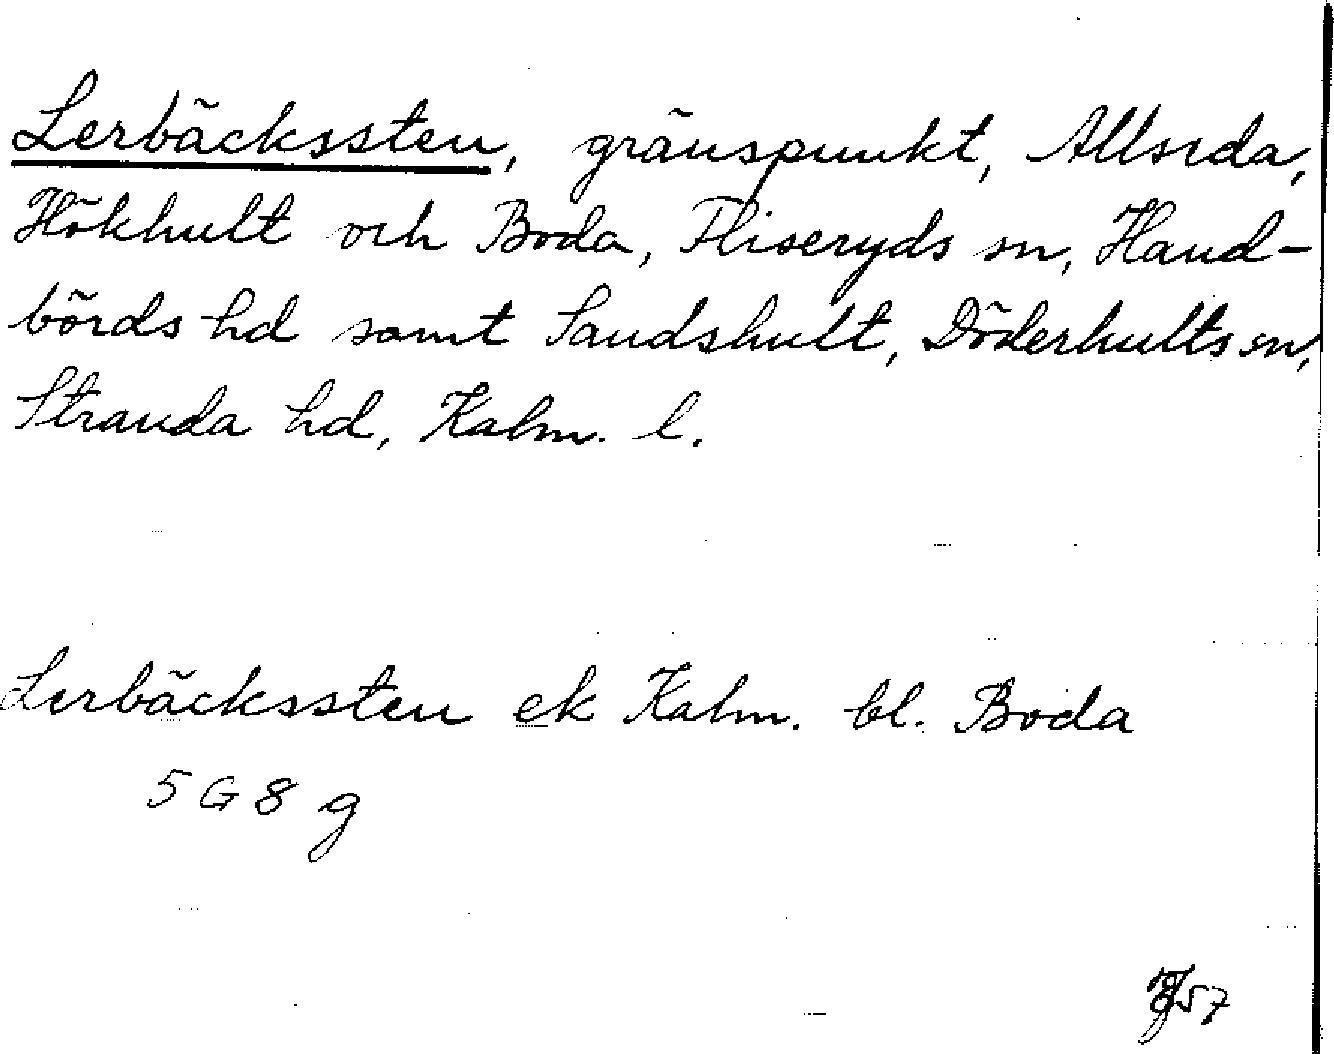 Lerbäckssten, gränspunkt, Allsrda,
Hökhult och Boda, Fliseryds sn, Hand-
börds hd samt Sandshult, Döderhults sn,
Stranda hd, Kalm. l.
Lerbäckssten ek Kalm. bl. Boda
5 G 8 g
57